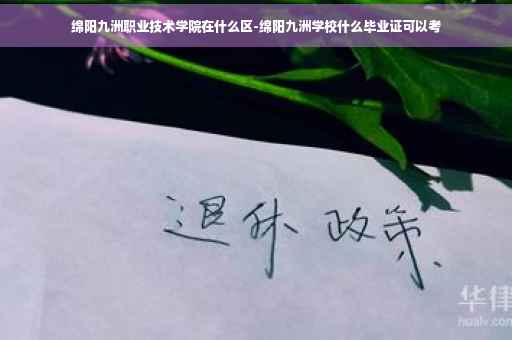 绵阳九洲职业技术学院在什么区-绵阳九洲学校什么毕业证可以考
退休 政策
华律
hualv.com